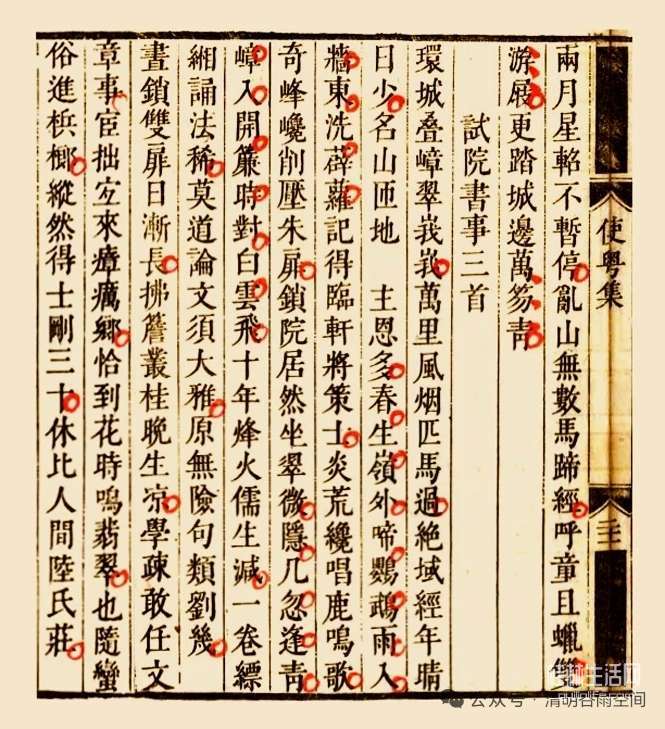 使粵集
兩月星軺不暫停亂山無數馬蹄經呼童且蠟雙
游屐更踏城邊萬笏青
試院書事三首
環城叠嶂翠峩峩萬里風烟匹馬過絕域經年晴
日少名山匝地　主恩多春生嶺外啼鸚鵡雨入
牆東洗薜蘿記得臨軒將策士炎荒纔唱鹿鳴歌
奇峰巉削壓朱扉鎖院居然坐翠微隱几忽逢青
嶂入開簾時對白雲飛十年烽火儒生減一卷縹
緗誦法稀莫道論文須大雅原無險句類劉幾
晝鎖雙扉日漸長拂簷叢桂晚生凉學疎敢任文
章事宦拙宐來瘴癘鄉恰到花時鳴翡翠也隨蠻
俗進梹榔縱然得士剛三十休比人間陸氏莊
生活网
公众号·清明谷雨空间